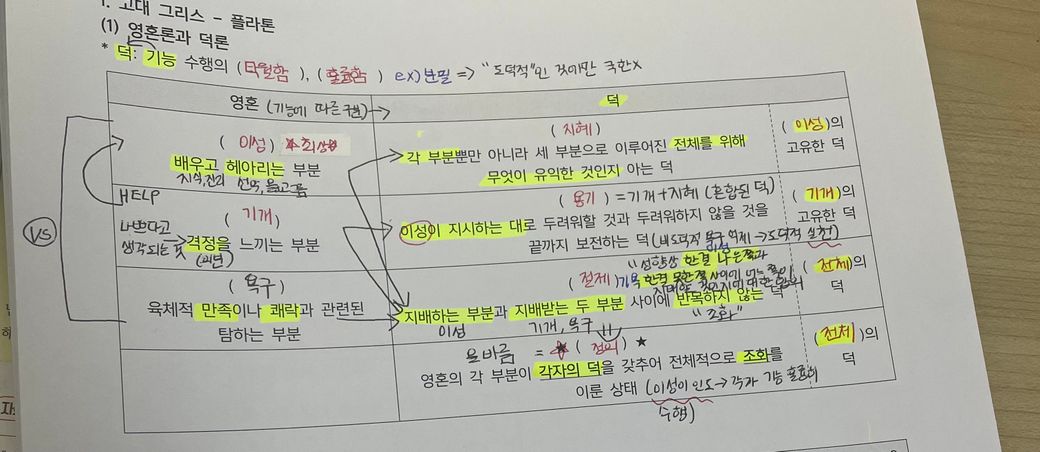 1. 고대 그리스 - 플라톤
(1) 영혼론과 덕론
* 덕: 기능 수행의 (탁월함), (훌륭함) ex) 분필 => "도덕적"인 것에만 국한X
영혼 (기능에 따른 구분)
덕
(이성) *최상위
배우고 헤아리는 부분
지식, 진리 선악, 옳고그름
(지혜)
각 부분뿐만 아니라 세 부분으로 이루어진 전체를 위해
무엇이 유익한 것인지 아는 덕
(이성)의
고유한 덕
HELP
VS
나쁘다고
생각되는 것
(기개)
격정을 느끼는 부분
(용기) = 기개+지혜 (혼합된 덕)
이성이 지시하는 대로 두려워할 것과 두려워하지 않을 것을
끝까지 보전하는 덕 (비도덕적 욕구 억제 → 도덕적 실천)
(기개)의
고유한 덕
(욕구)
육체적 만족이나 쾌락과 관련된
탐하는 부분
이성
"성향상 한결 나은쪽과
(절제) 한결 못한쪽 사이에
지배하는 부분과 지배받는 두 부분 사이에 반목하지 않는 덕
이성 기개, 욕구 "조화"
(전체)의
덕
올바름 = ★ (정의) ★
영혼의 각 부분이 각자의 덕을 갖추어 전체적으로 조화를
이룬 상태 (이성이 인도 → 각자 기능 훌륭히
수행)
(전체)의
덕